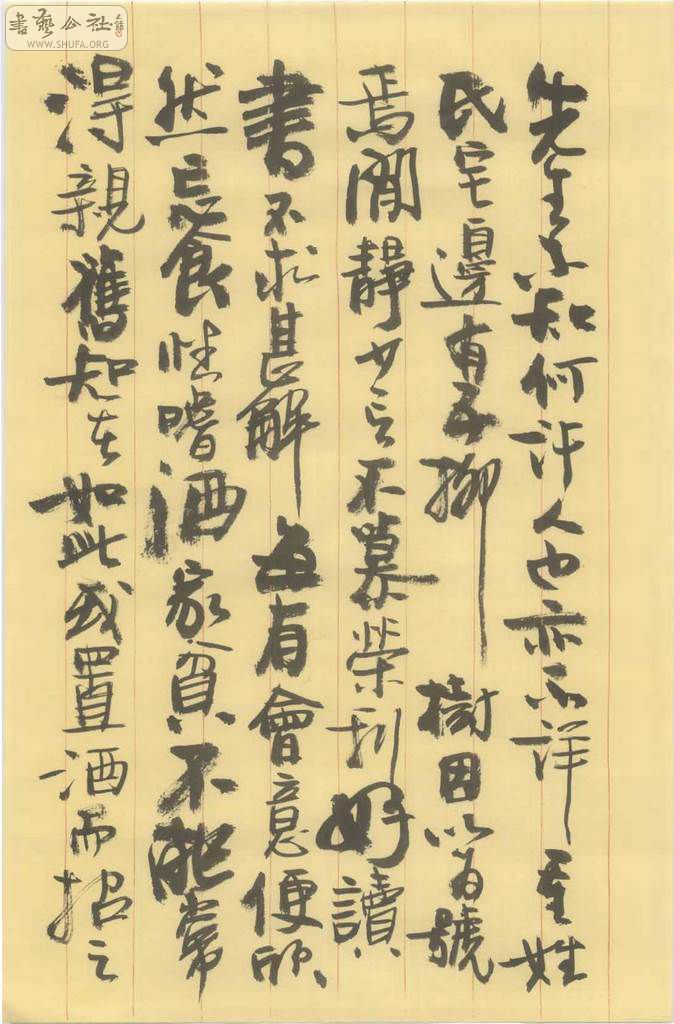 書藝公社
WWW.SHUFA.ORG
先生不知何許人也亦不詳其姓
氏宅邊有五柳樹因以為號
焉閒靜少言不慕榮利好讀
書不求甚解每有會意便欣
然忘食性嗜酒家貧不能常
得親舊知其如此或置酒而招之